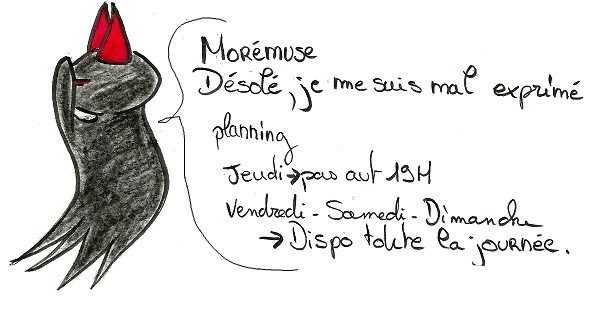 MORéMUSE
Désolé, je me suis mal exprimé
planning
Jeudi → pas avt 19H
Vendredi - Samedi - Dimanche
→ Dispo toute la journée.